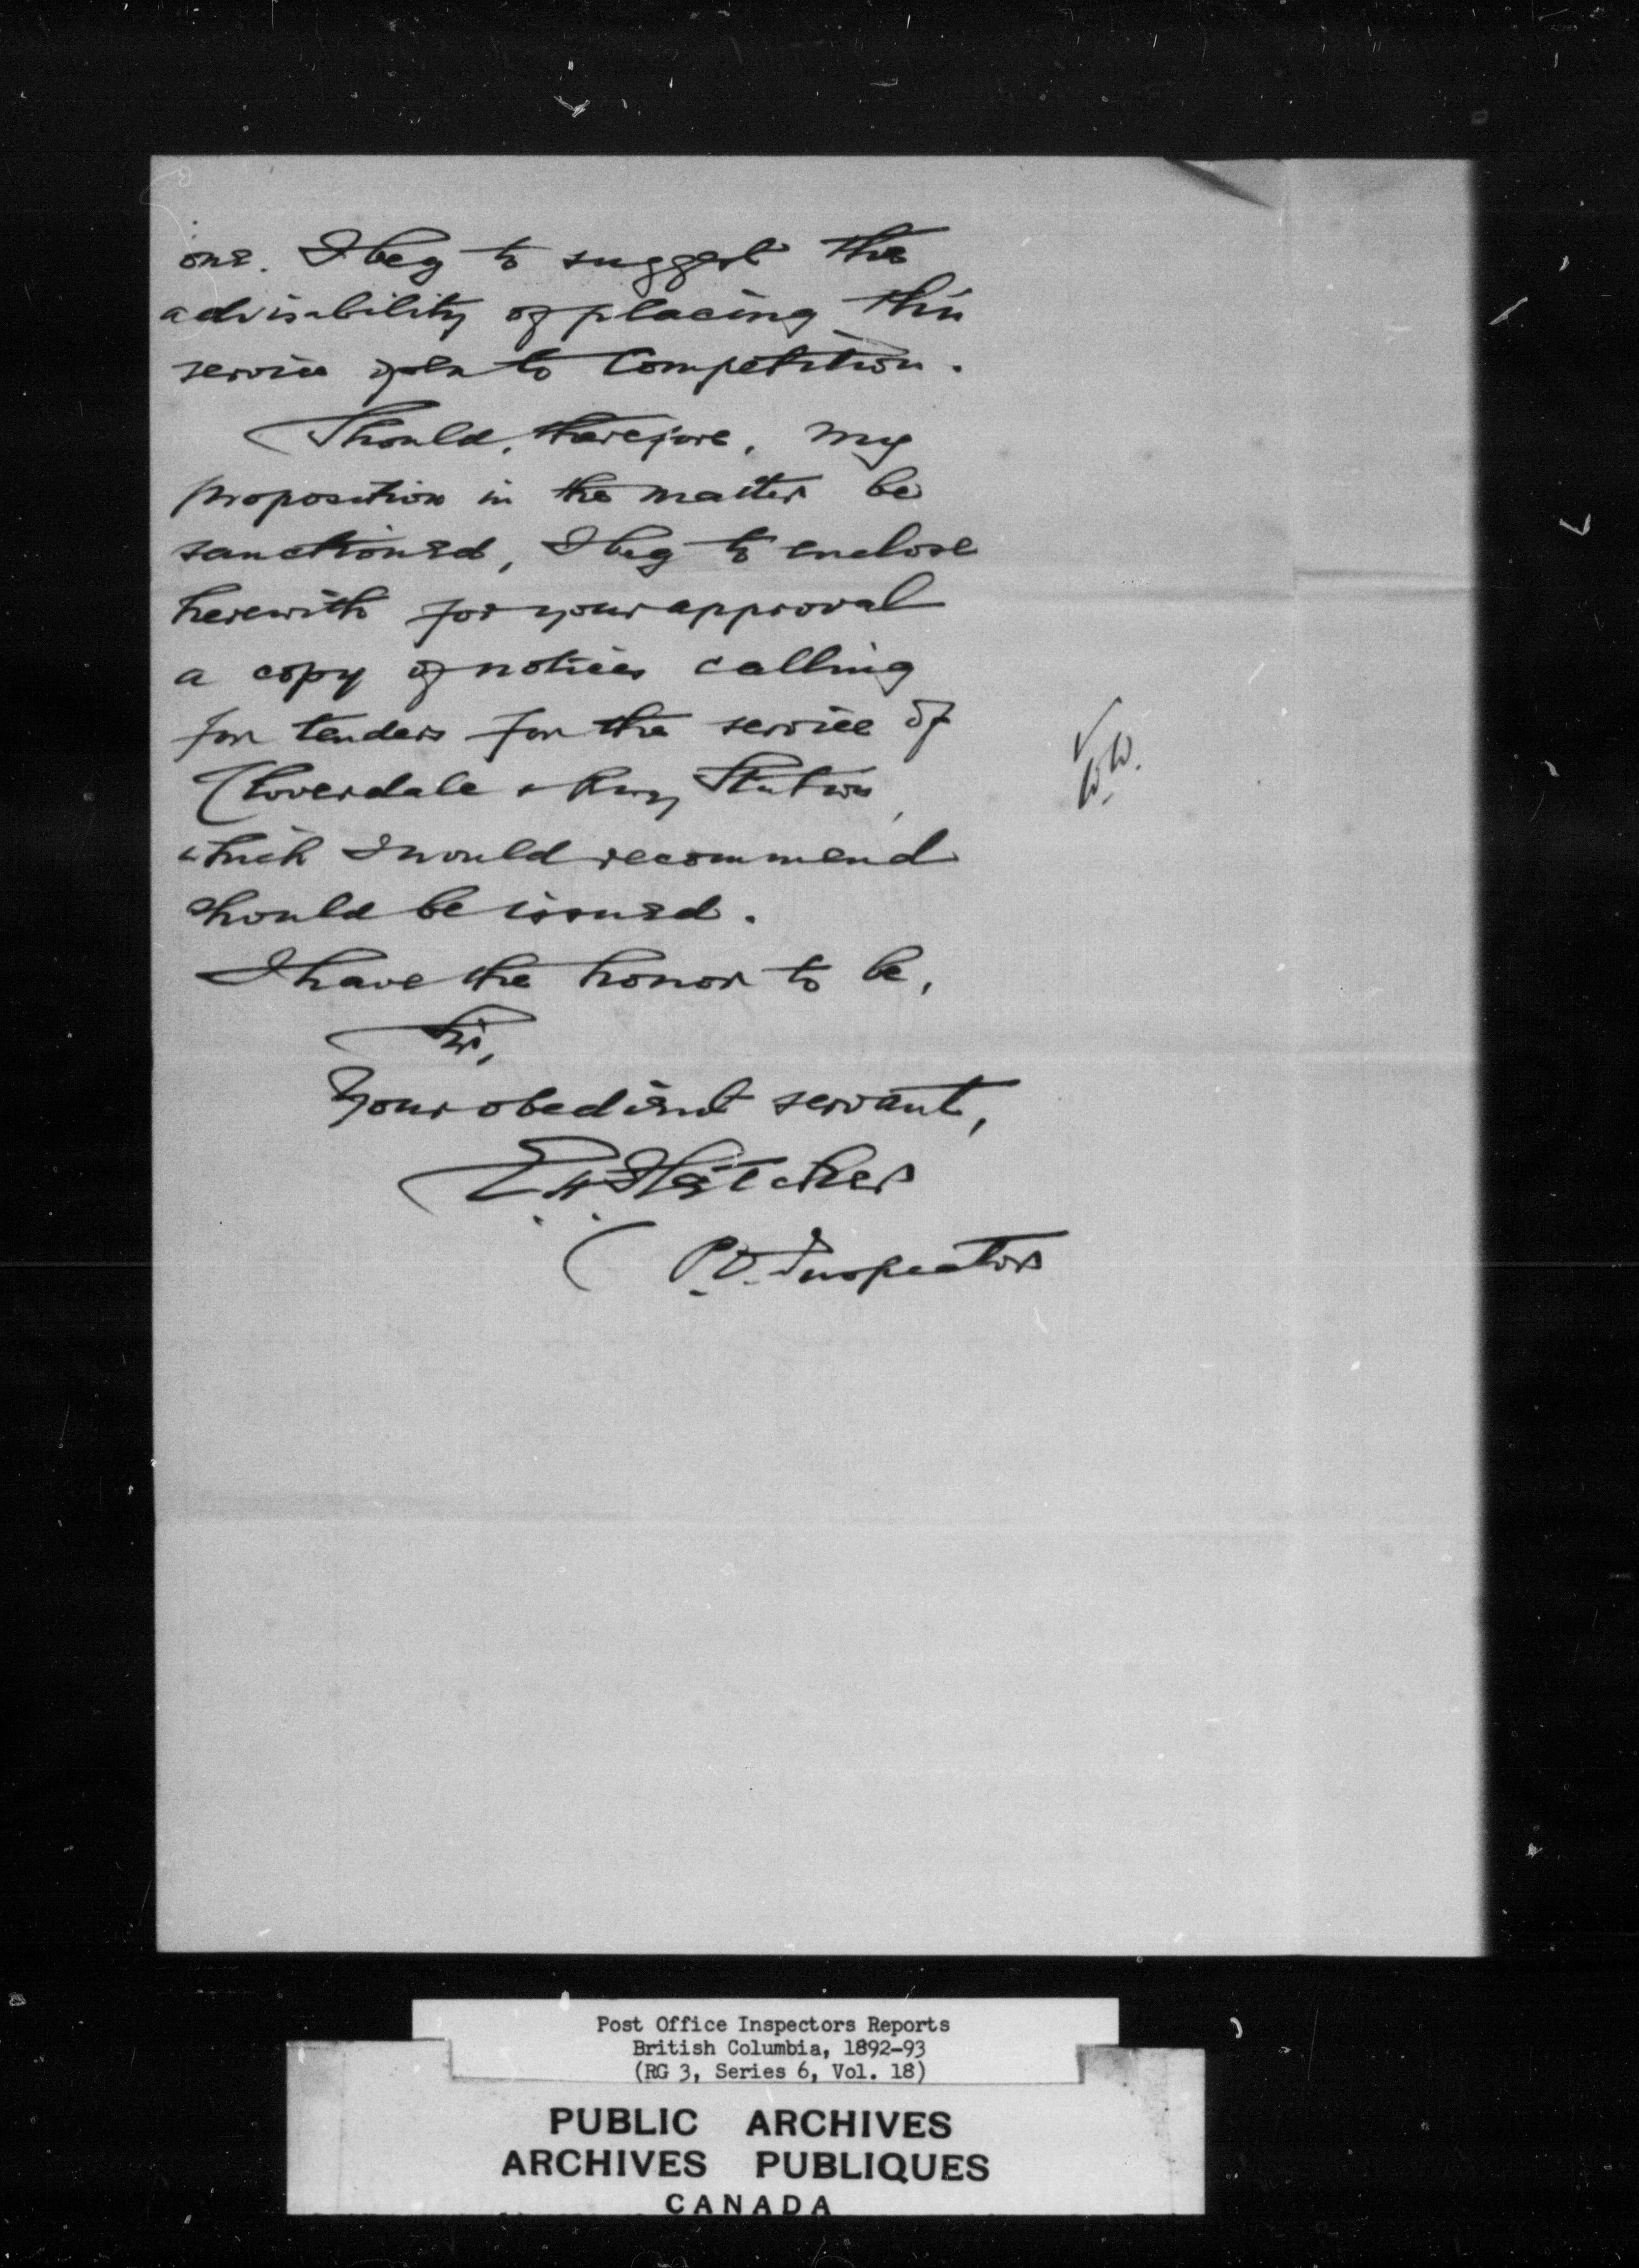 one. I beg to suggest the
advisability of placing this
service open to Competition.
Should, therefore, my
proposition in the matter be
sanctioned, I beg to enclose
herewith for your approval
a copy of notices calling
for tenders for the service of
Cloverdale & Rwy Station,
which I would recommend
should be issued.
I have the honor to be,
Sir,
Your obedient servant,
E. H. Fletcher
P.O. Inspector
W.W.
Post Office Inspectors Reports
British Columbia, 1892-93
(RG 3, Series 6, Vol. 18)
PUBLIC ARCHIVES
ARCHIVES PUBLIQUES
CANADA